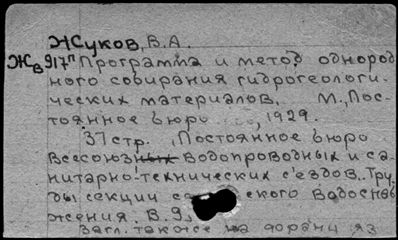 Жуков, В.А.
Жв 917п Программа и метод однород
ного собирания гидрогеологи-
ческих материалов. М., Пос-
тоянное бюро 1929.
37 стр. , Постоянное бюро
Всесоюзных водопроводных и са-
нитарно-технических съездов. Тру-
ды секции ского водоснаб
жения. В. 9,
Загл. также на форани. яз